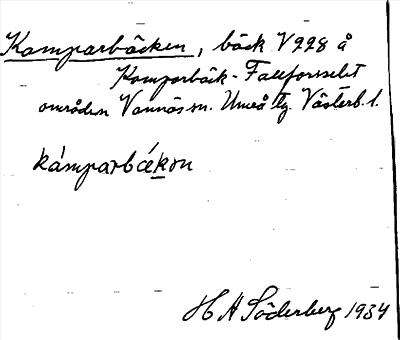 Kamparbäcken, bäck V 228 å
Kamparbäck-Fallforsselet
områden Vännäs sn. Umeå tg. Västerb. l.
kámparbǽkɷn
H A Söderberg 1934